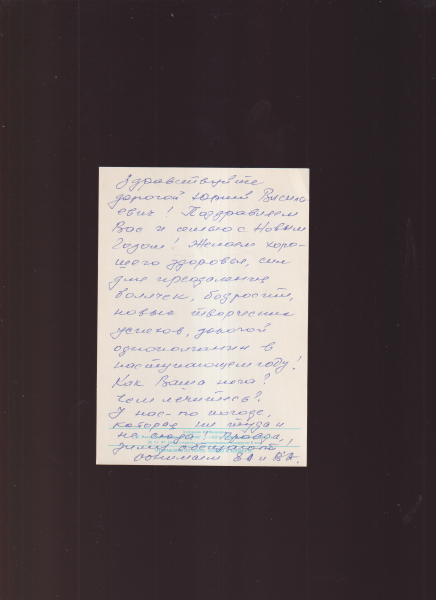 Здравствуйте
дорогой Юрий Василь
евич! Поздравляем
Вас и семью с Новым
Годом! Желаем хоро-
шего здоровья, сил
для преодоления
болячек, бодрости,
новых творческих
успехов, дорогой
однополчанин в
наступающем году!
Как Ваша нога?
Чем лечитесь?
У нас - по погоде,
которая ни туда и
не сюда! Правда,
зиму обещают
Обнимаем